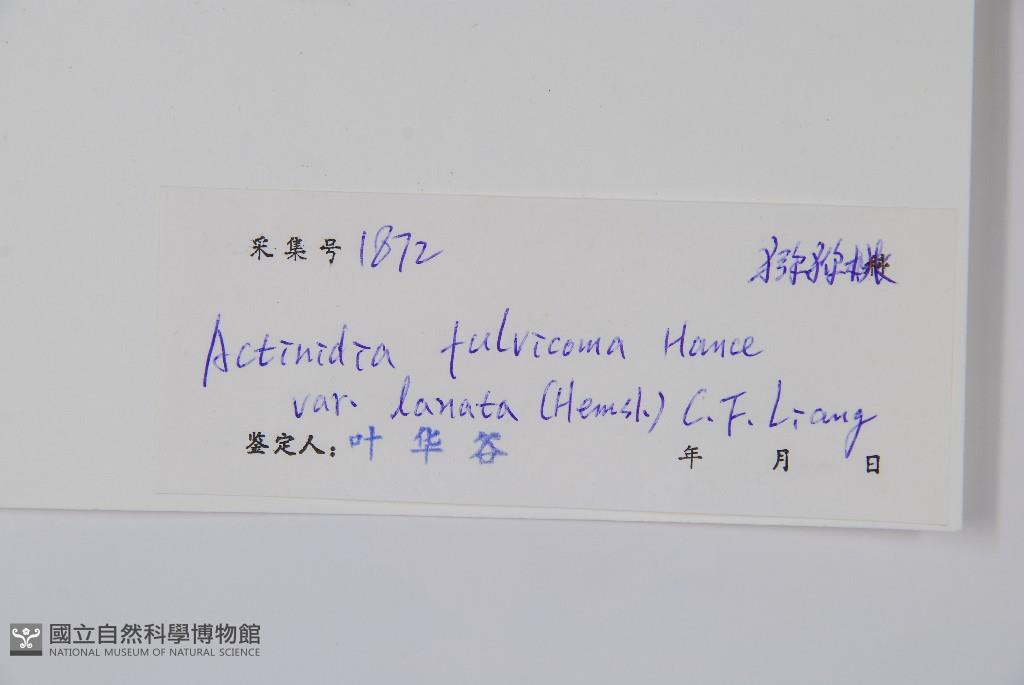 采集号 1872
猕猕桃
Actinidia fulvicoma Hance
var. lanata (Hemsl.) C.F. Liang
鉴定人：叶华谷 年 月 日
國立自然科學博物館
NATIONAL MUSEUM OF NATURAL SCIENCE